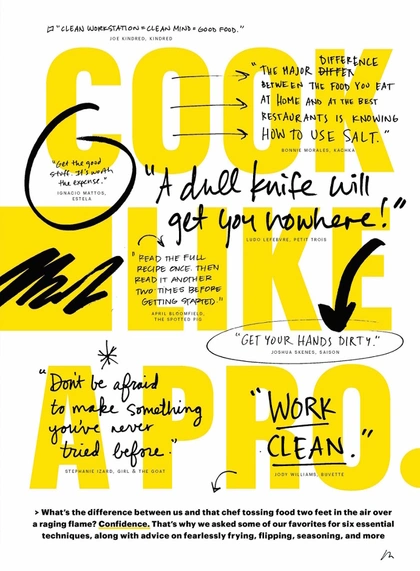 "CLEAN WORKSTATION = CLEAN MIND = GOOD FOOD."
JOE KINDRED, KINDRED
COOK
"THE MAJOR DIFFEN DIFFERENCE
BETWEEN THE FOOD YOU EAT
AT HOME AND AT THE BEST
RESTAURANTS IS KNOWING
HOW TO USE SALT."
BONNIE MORALES, KACHKA
"Get the good
stuff. It's worth
the expense."
IGNACIO MATTOS,
ESTELA
"A dull knife will
get you nowhere!"
LUDO LEFEBVRE, PETIT TROIS
LIKE
"READ THE FULL
RECIPE ONCE. THEN
READ IT ANOTHER
TWO TIMES BEFORE
GETTING STARTED."
APRIL BLOOMFIELD,
THE SPOTTED PIG
"GET YOUR HANDS DIRTY."
JOSHUA SKENES, SAISON
A PRO.
"Don't be afraid
to make something
you've never
tried before."
STEPHANIE IZARD, GIRL & THE GOAT
"WORK
CLEAN."
JODY WILLIAMS, BUVETTE
> What's the difference between us and that chef tossing food two feet in the air over
a raging flame? Confidence. That's why we asked some of our favorites for six essential
techniques, along with advice on fearlessly frying, flipping, seasoning, and more